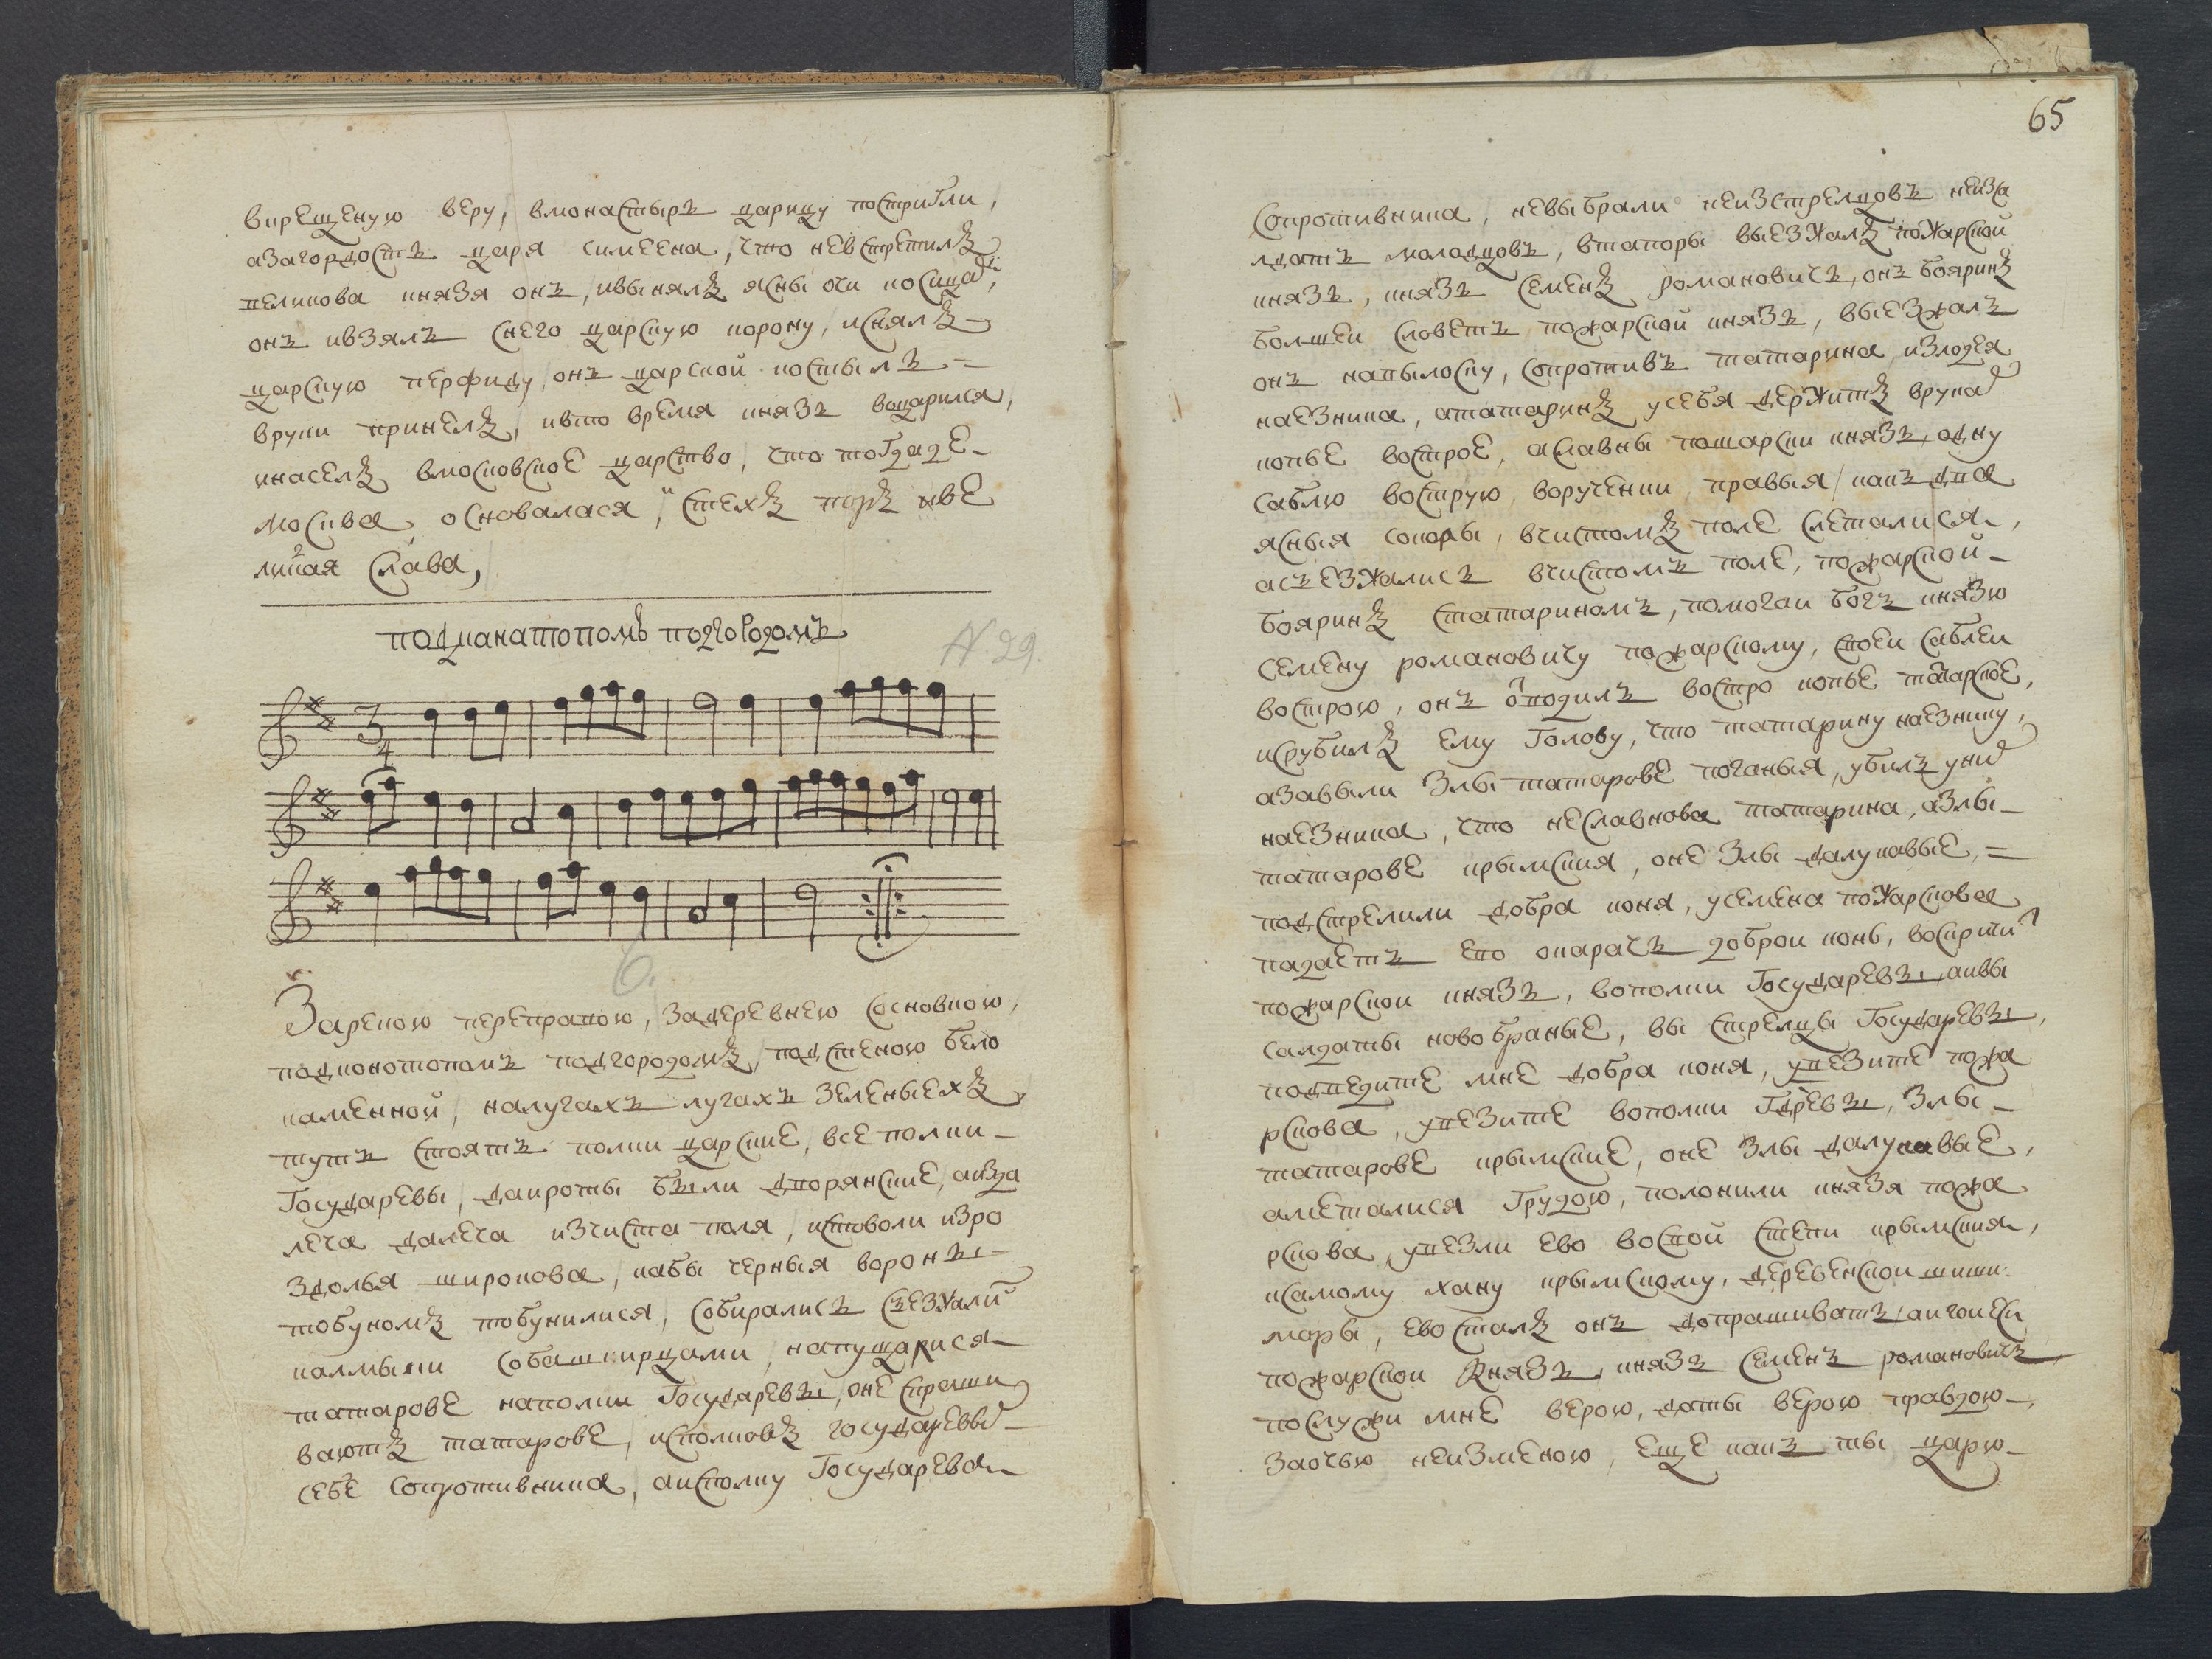 вкрещеную веру, вмонастырь царицу постригли,
азагордость царя симеена, что невстретилъ
великова князя онъ, ивынялъ ясны очи косица,
онъ ивзялъ снего царскую корону, иснялъ
царскую перфиду, онъ царской костыль =
вруки принелъ, ивто время князь воцарился,
инаселъ вмосковское царство, что тогдаде-
москва основалася, истехъ поръ ве
ликая слава,
подканатопомъ подгородомъ
N. 29.
3/4
6.
Зарекою переправою, задеревнею сосновкою,
подконотопомъ подгородомъ, подстеною бело
каменной, налугахъ лугахъ зеленыехъ,
тутъ стоятъ полки царские, все полки-
государевы, даироты были дворянские, аизда
леча далеча изчиста поля, истоволи изро
здолья широкова, кабы черныя вороны
тобуномъ тобунилися, собирались съезжали
калмыки собашкирцами, напущалися
татарове наполки государевы, оне спраши
ваютъ татарове, исполковъ государевы
себе сопротивника, аисполку государева
65
Сопротивника, невыбрали неизстрелцовъ неизса
лдатъ молодцовъ, втапоры выезжалъ пожарской
князь, князь семенъ романовичь, онъ бояринъ
болшеи словетъ пожарской князь, выезжалъ
онъ навылоску, сопротивъ татарина, излодея
наезника, ататаринъ усебя держитъ врука
копье востроѐ, аславны пошарски князь, одну
саблю вострую воручении правыя, какъ два
ясныя соколы, вчистомъ поле слеталися,
асъезжались вчистомъ поле, пожарской-
бояринъ статариномъ, помогаи богъ князю
семену романовичу пожарскому, своеи саблеи
вострою, онъ отводилъ востро копье татарское,
исрубилъ ему голову, что татарину наезнику,
азавыли злы татарове поганыя, убилъ уни
наезника, что неславнова татарина, азлы-
татарове крымския, оне злы далукавые, =
подстрелили добра коня, усемена пожарскова
падаетъ ево окарачь доброи конь, воскричи
пожарскои князь, вополки государевы, аивы
салдаты новобраные, вы стрелцы государевы,
подведите мне добра коня, увезите пожа
рскова, увезите вополки гдревы, злы-
татарове крымские, оне злы далукавые,
аметалися грудою, полонили князя пожа
рскова, увезли ево восвои степи крымския,
ксамому хану крымскому, деревенскои шиши
моры, ево сталъ онъ допрашивать, аигоиеси
пожарскои князь, князь семенъ романовичь,
послужи мне верою, даты верою правдою-,
заочью неизменою, еще какъ ты царю-